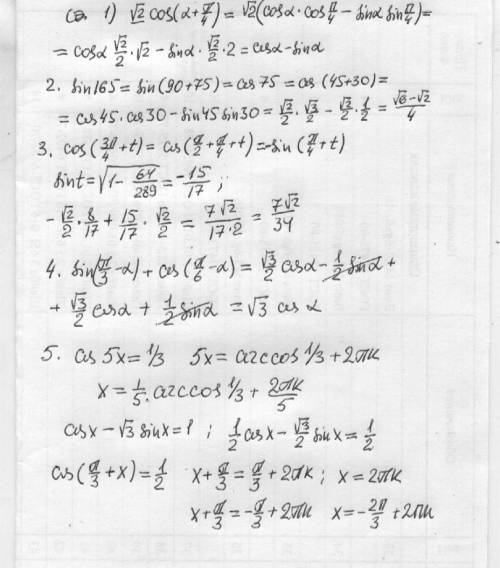 Ca. 1) √2 cos(α+π/4) = √2(cosα·cos π/4 − sinα sin π/4) =
= cosα √2/2·√2 − sinα·√2/2·2 = cosα − sinα
2. sin165 = sin(90+75) = cos75 = cos(45+30) =
= cos45·cos30 − sin45 sin30 = √2/2·√3/2 − √2/2·1/2 = (√6−√2)/4
3. cos(3π/4+t) = cos(π/2+π/4+t) = −sin(π/4+t)
sint = √(1−64/289) = −15/17;
−√2/2·8/17 + 15/17·√2/2 = 7√2/(17·2) = 7√2/34
4. sin(π/3−α) + cos(π/6−α) = √3/2 cosα − 1/2 sinα +
+ √3/2 cosα + 1/2 sinα = √3 cosα
5. cos 5x = 1/3 5x = arccos 1/3 + 2πk
x = 1/5·arccos 1/3 + 2πk/5
cosx − √3 sinx = 1; 1/2 cosx − √3/2 sinx = 1/2
cos(π/3+x) = 1/2 x+π/3 = π/3 + 2πk; x = 2πk
x+π/3 = −π/3 + 2πk x = −2π/3 + 2πk